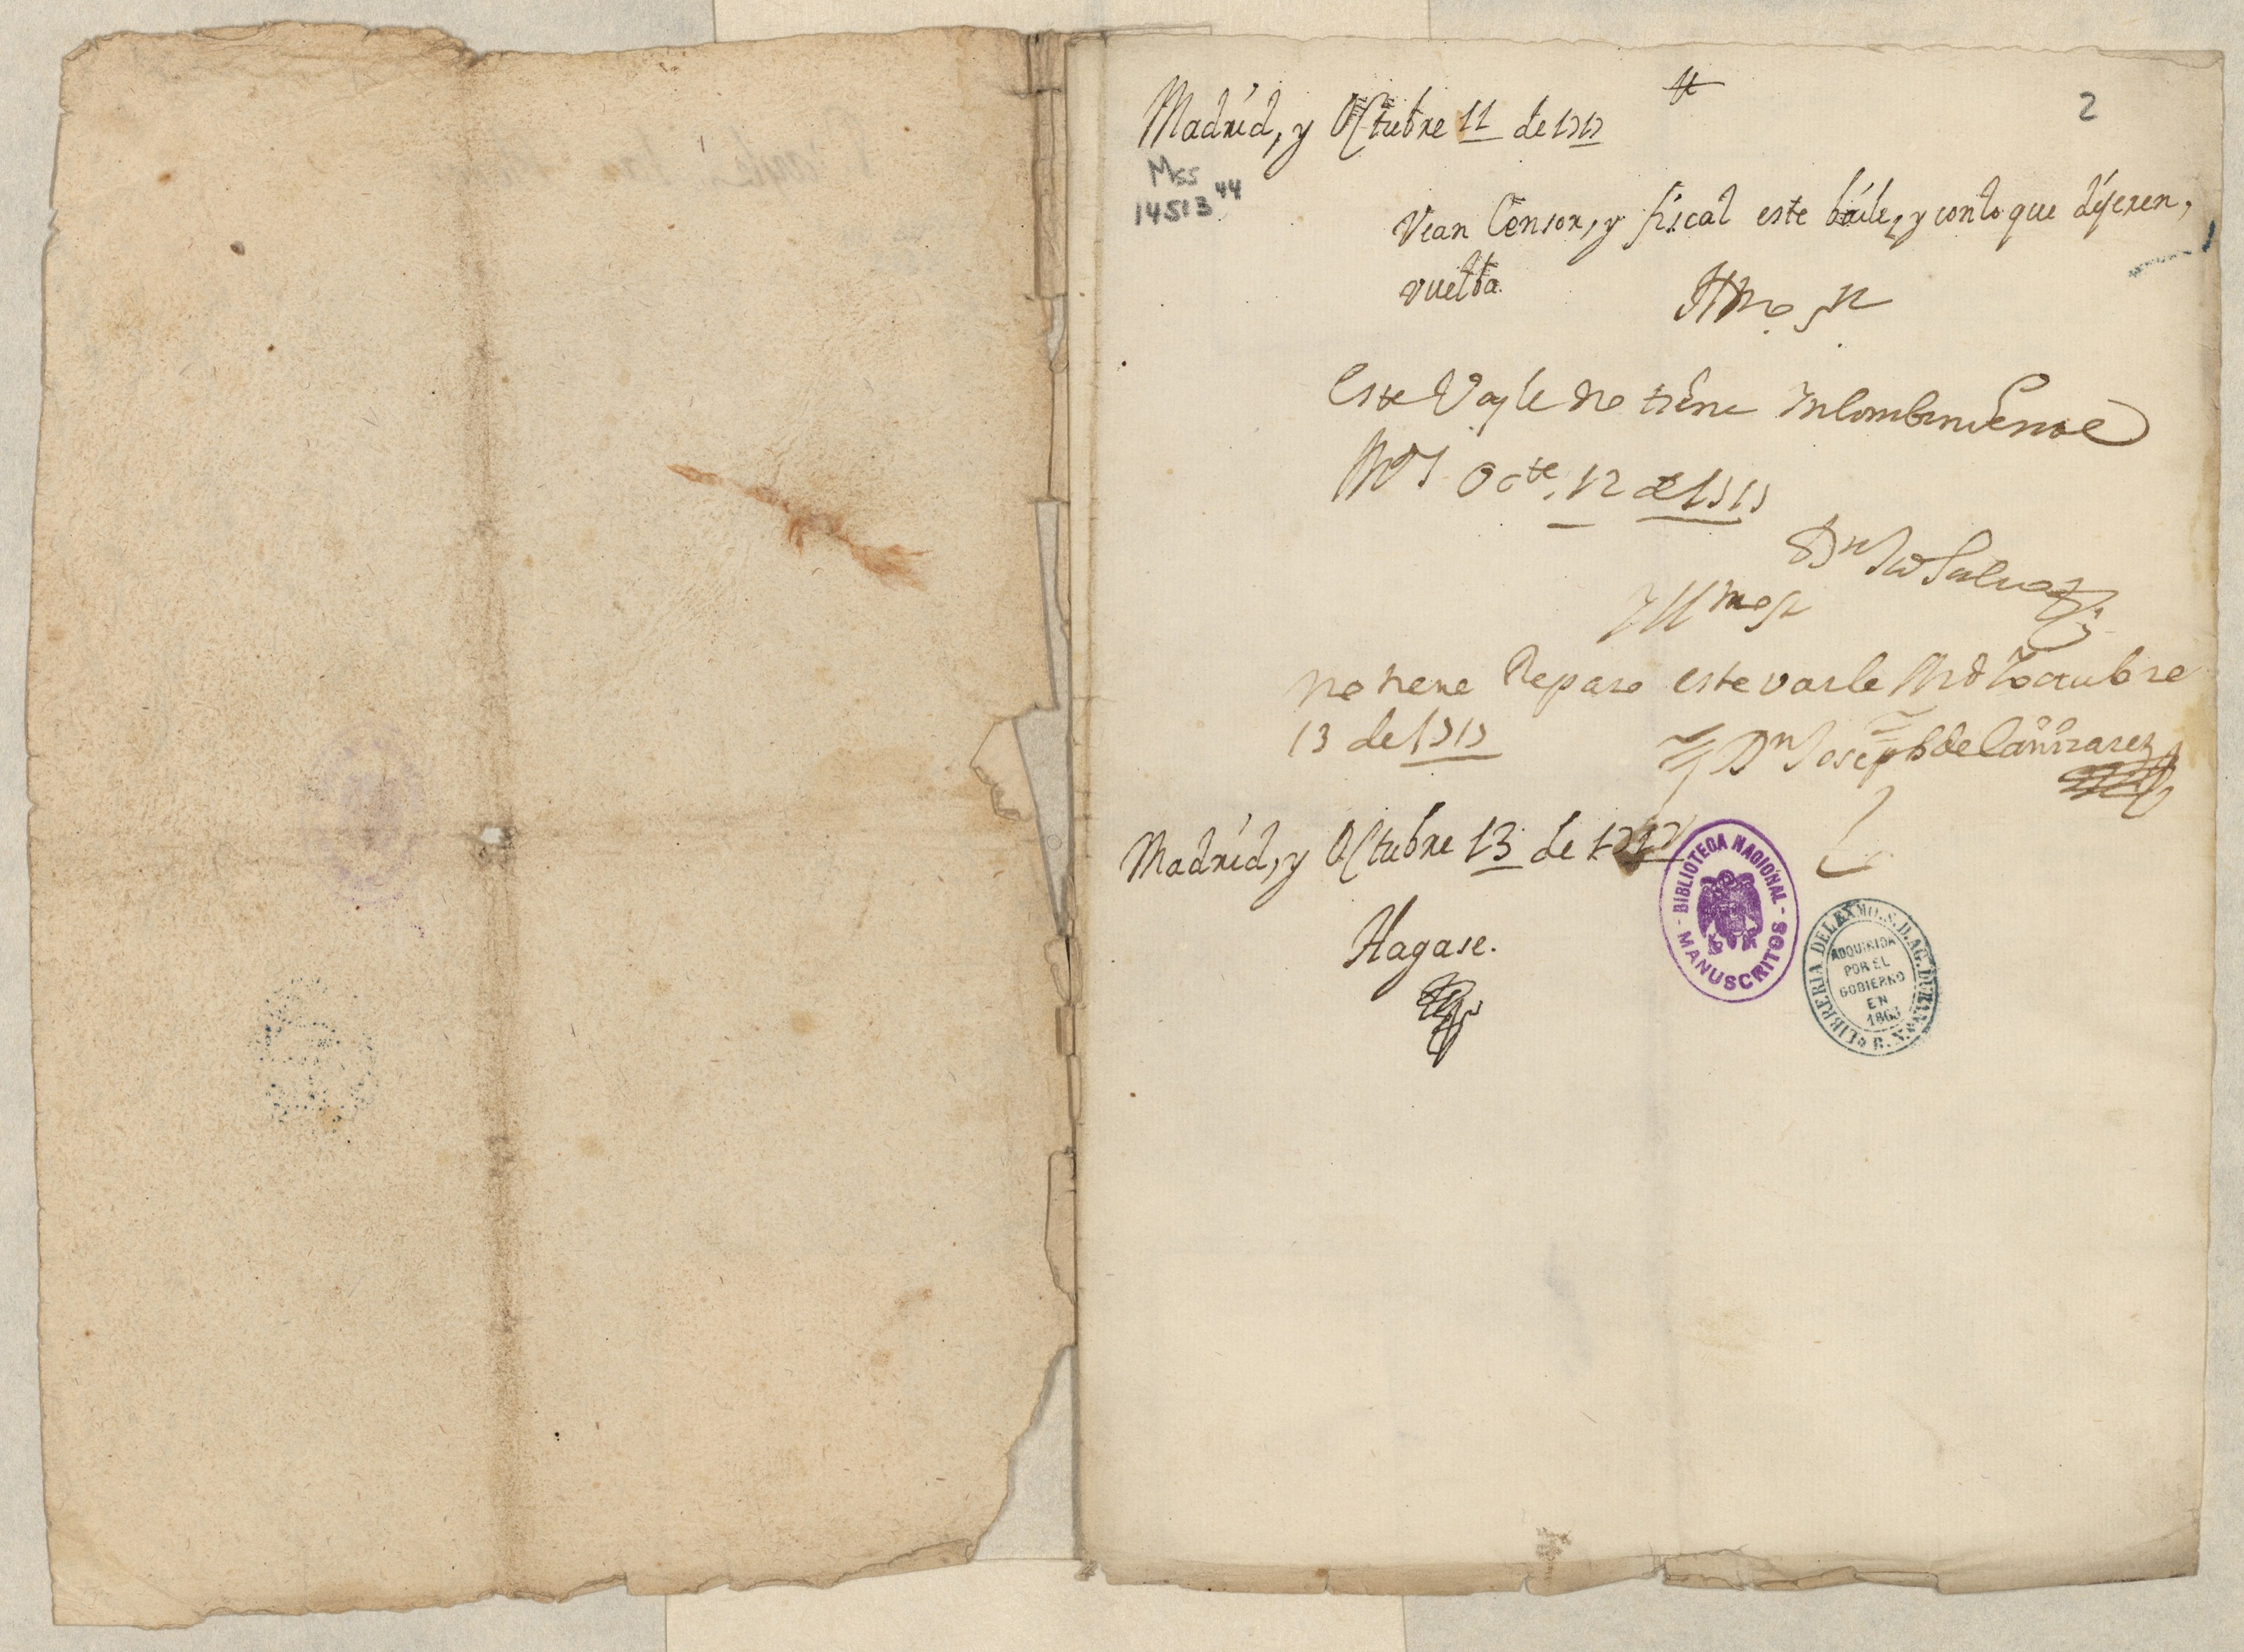 2
Madrid, y Octubre 11 de 1717
Mss
14513 44
Vean Censor, y fiscal este baile, y con lo que dijeren,
vuelba.
Illmo Sr
Este Vayle no tiene Incombeniente
Md Octe. 12 de 1717
Dn Jo Salvo
Illmo Sr
no tiene Reparo este vaile Md y octubre
13 de 1717
Dn Joseph de Cañizares
Madrid, y Octubre 13 de 1717
Hagase.
BIBLIOTECA NACIONAL
MANUSCRITOS
LIBRERIA DEL EXMO. S. D. AG. DURAN. B. N.
ADQUIRIDA
POR EL
GOBIERNO
EN
1863